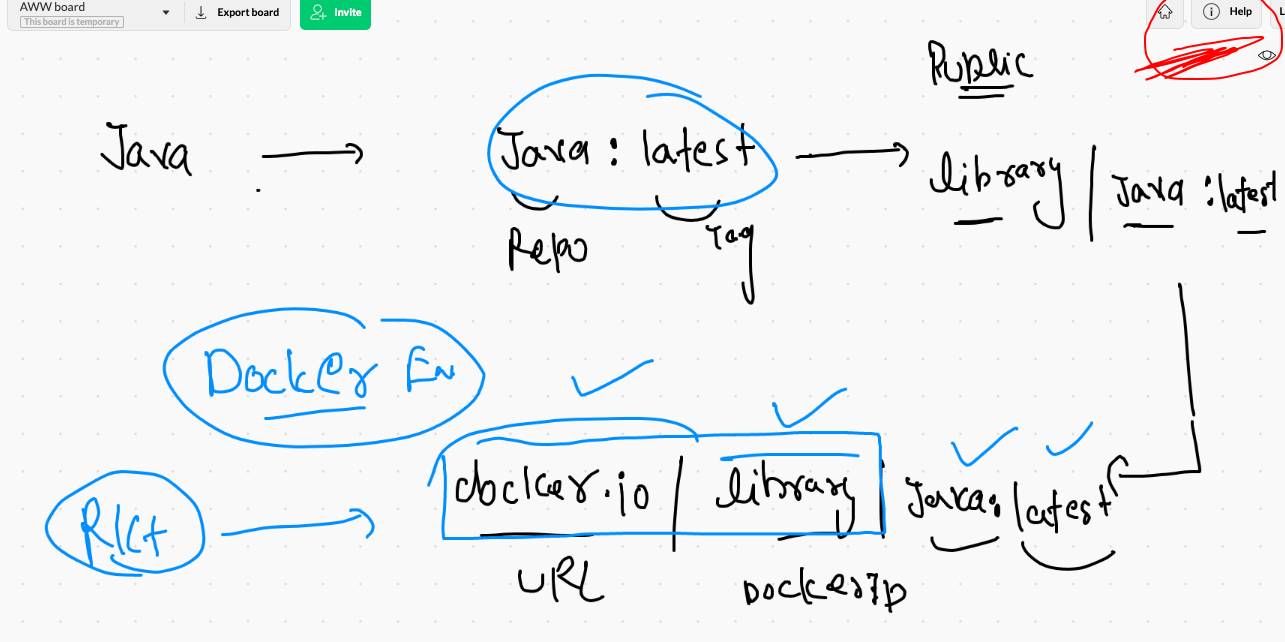 AWW board
This board is temporary
Export board
Invite
Help
L
Public
Java
Java : latest
library / Java : latest
Repo
Tag
Docker En
docker.io / library / Java : latest
URL